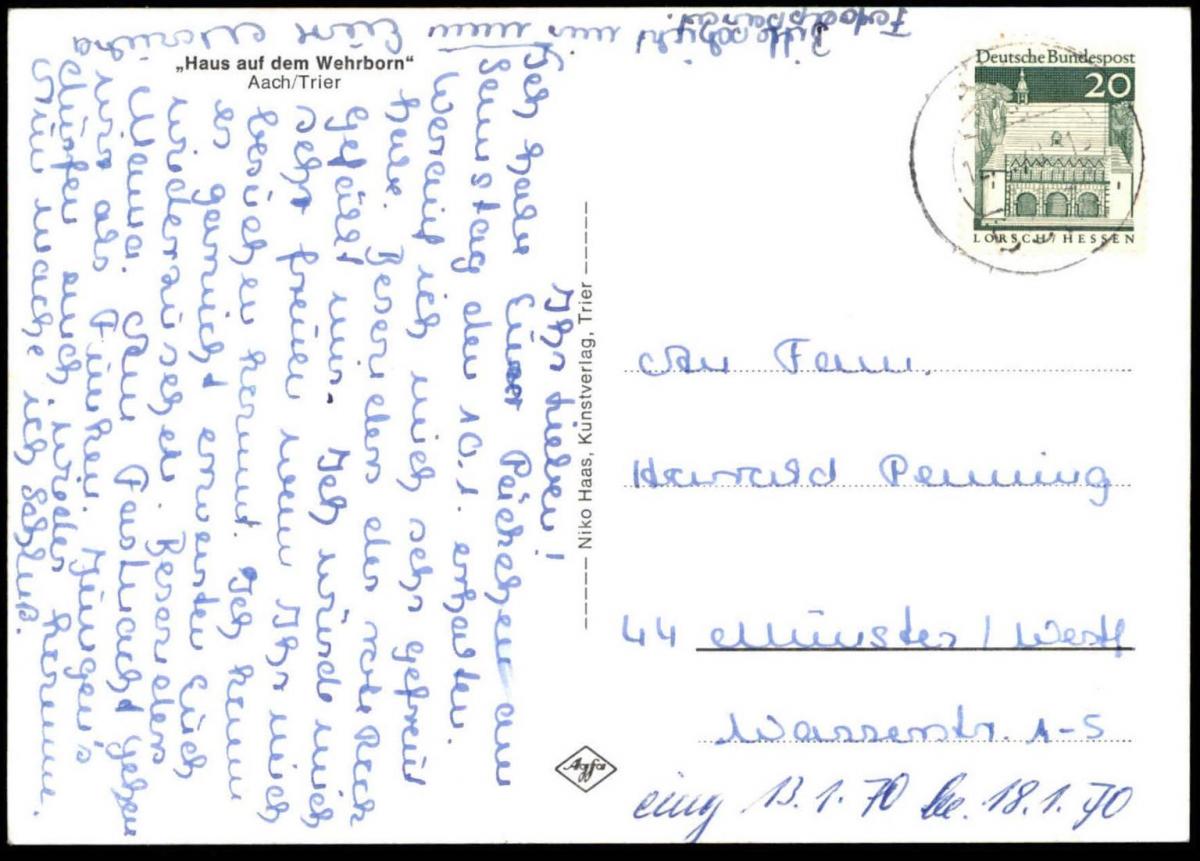 „Haus auf dem Wehrborn“
Aach/Trier
Ihr Lieben!
Ich habe Euer Päckchen am
Samstag den 10.1. erhalten.
Worauf ich mich sehr gefreut
habe. Besonders der rote Rock
gefällt mir. Ich würde mich
sehr freuen wenn Ihr mich
besuchen kommt. Ich kann
es garnicht erwarten Euch
wiederzusehen. Besonders
Mama. An Fastnacht gehen
wir als Funken. Jungen's
dürfen auch wieder kommen.
Nun mache ich Schluß.
Eure
Niko Haas, Kunstverlag, Trier
Agfa
Deutsche Bundespost
20
LORSCH/HESSEN
An Fam.
Harrald Penning
44 Münster/Westf
Wasserstr. 1-5
eing 13.1.70 be. 18.1.70